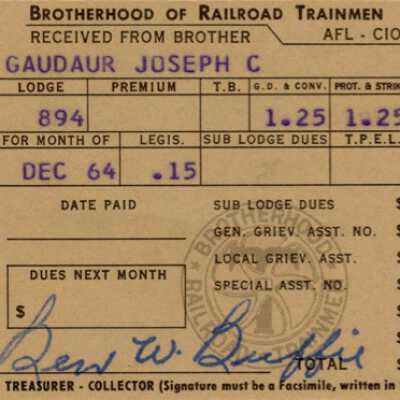 BROTHERHOOD OF RAILROAD TRAINMEN
RECEIVED FROM BROTHER AFL - CIO
GAUDAUR JOSEPH C
LODGE PREMIUM T.B. G.D. & CONV. PROT. & STRIK
894 1.25 1.25
FOR MONTH OF LEGIS. SUB LODGE DUES T.P.E.L.
DEC 64 .15
DATE PAID SUB LODGE DUES $
GEN. GRIEV. ASST. NO.
LOCAL GRIEV. ASST. $
DUES NEXT MONTH SPECIAL ASST. NO. $
BROTHERHOOD RAILROAD TRAINMEN
$
Ben W.
TOTAL $
TREASURER - COLLECTOR (Signature must be a Facsimile, written in